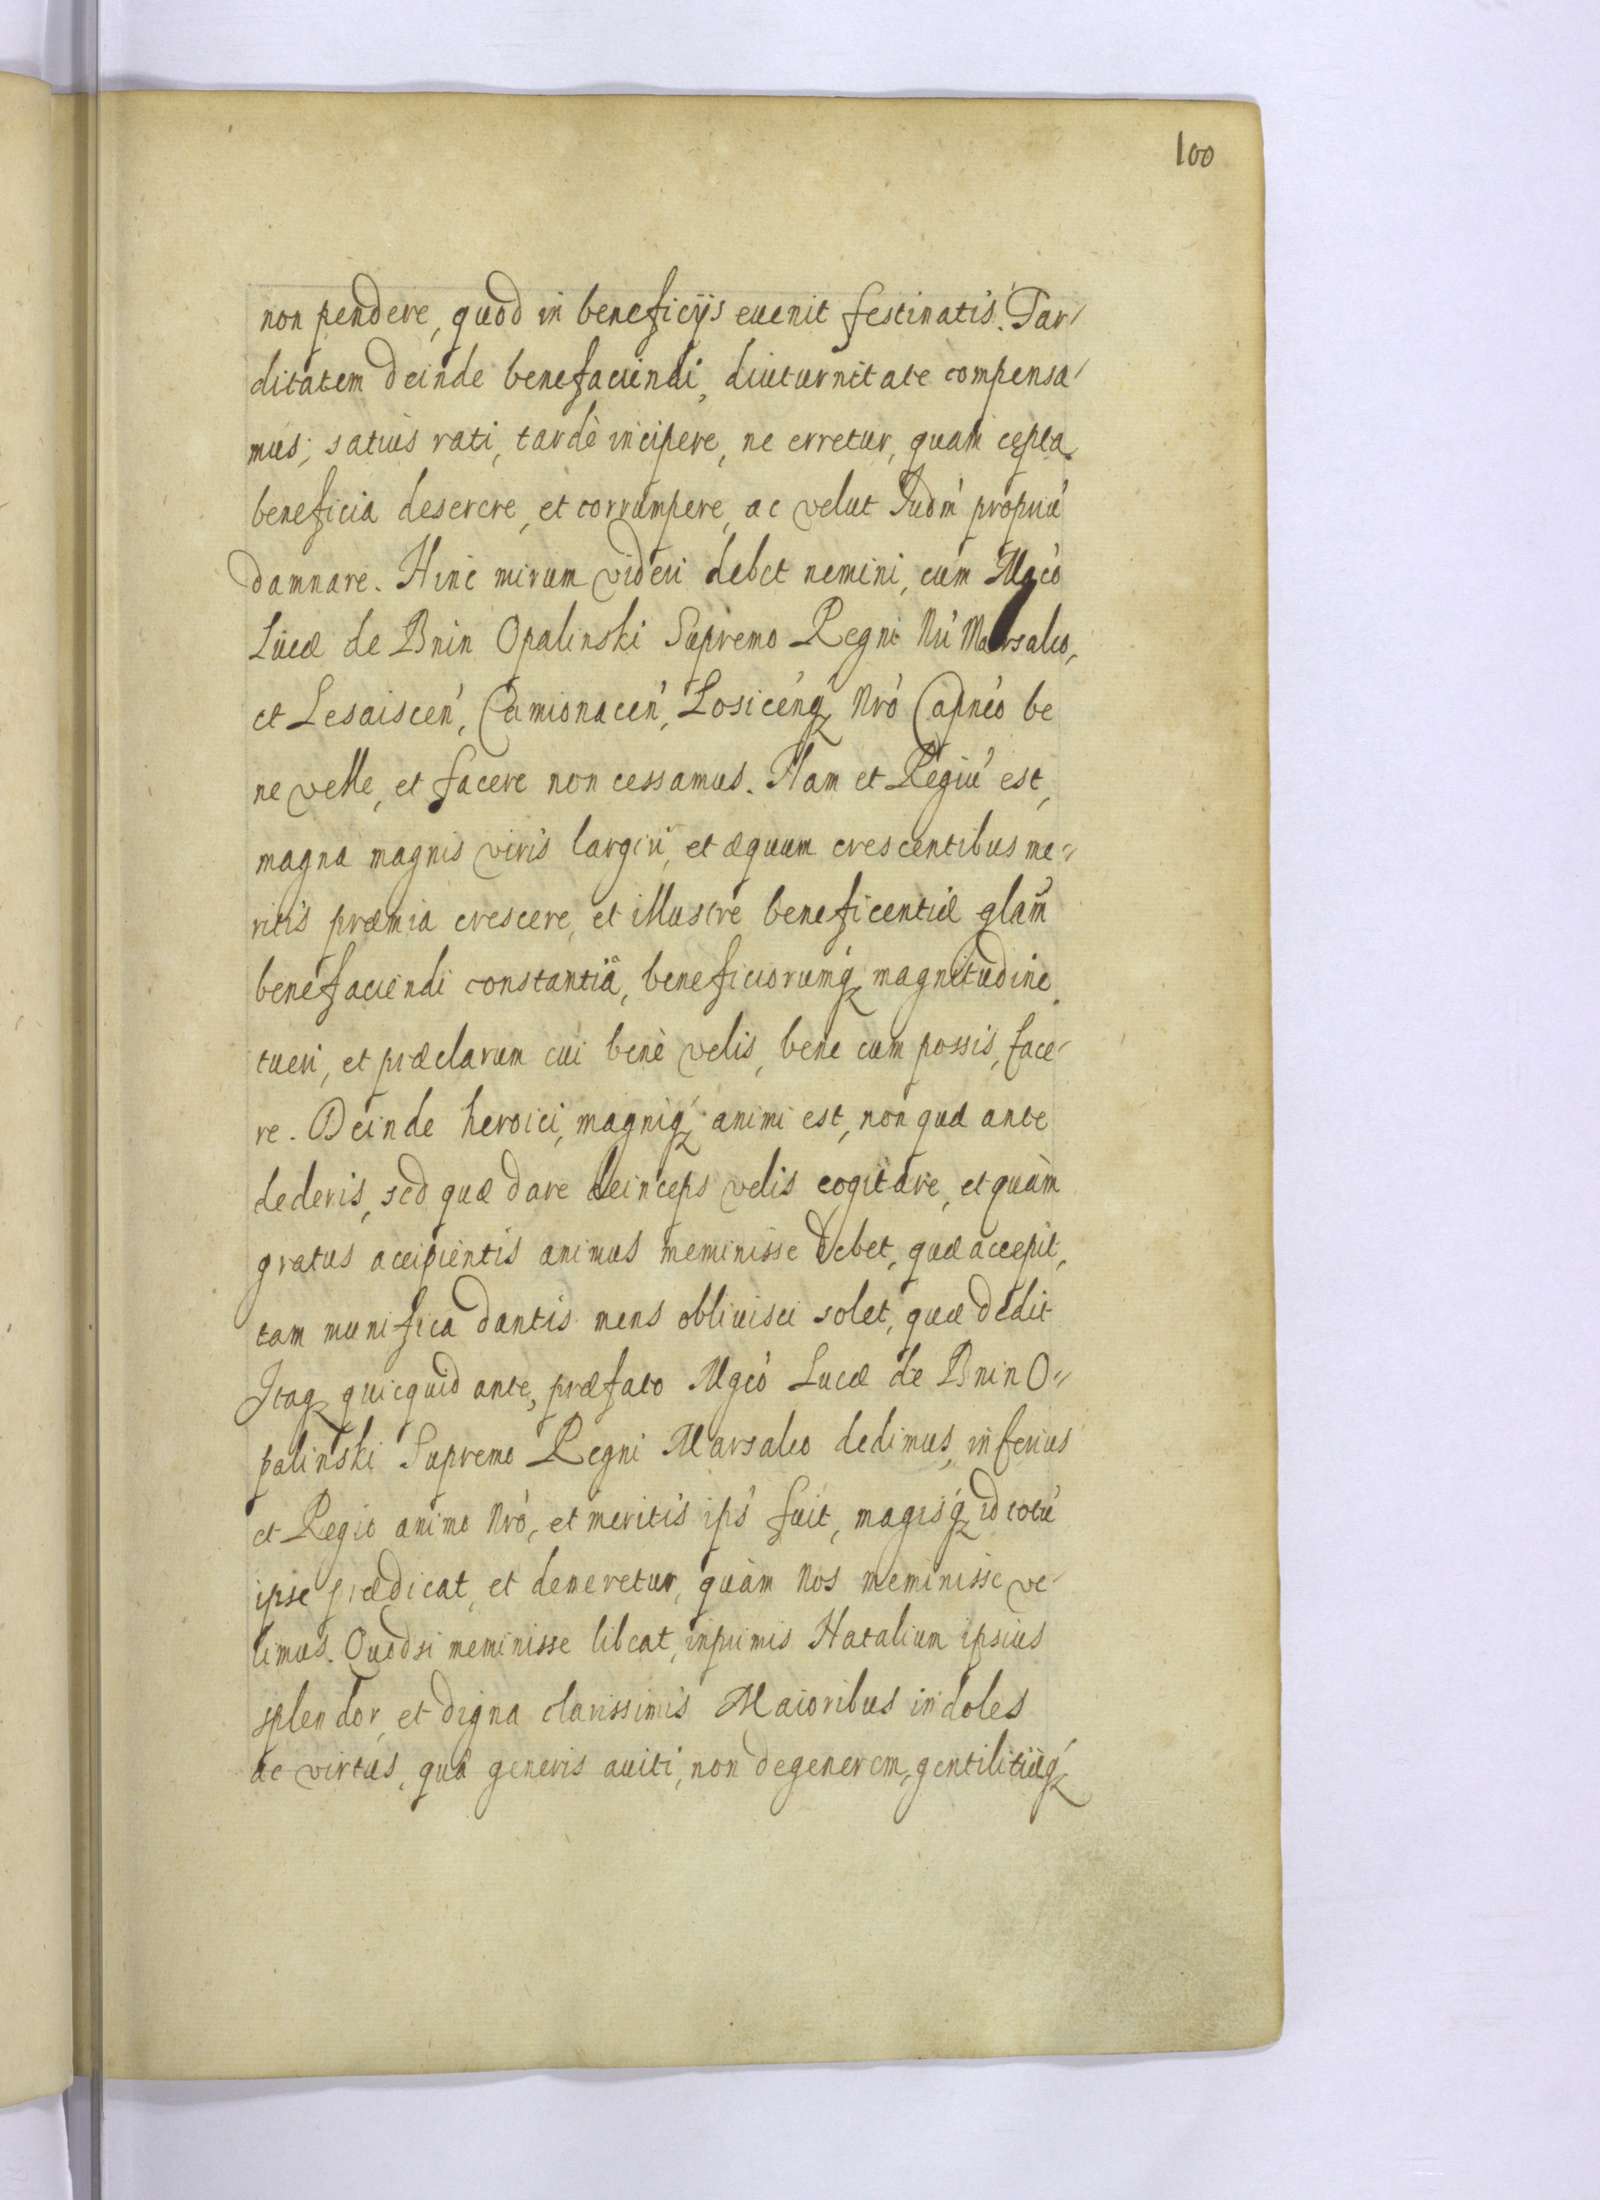 100
non pendere, quod in beneficijs euenit festinatis. Tar/
ditatem deinde benefaciendi, diuturnitate compensa/
mus; satius rati, tardè incipere, ne erretur, quam cepta
beneficia deserere, et corrumpere, ac velut Iudm̃ propriũ
damnare. Hinc mirum videri debet nemini, cum Mgcò
Lucæ de Bnin Opalinski Supremo Regni Nri Marsalco,
et Lesaiscen̕, Camionacen̕, Losicenq̕ Nrò Capneò be
ne velle, et facere non cessamus. Nam et Regiũ est,
magna magnis viris largiri, et æquum crescentibus me=
ritis præmia crescere, et illustre beneficentiæ glam̃
benefaciendi constantiâ, beneficiorumq̕ magnitudine
tueri, et præclarum cui benè velis, bene cum possis, face/
re. Deinde heroici, magniq̕ animi est, non quæ ante
dederis, sed quæ dare deinceps velis cogitare, et quàm
gratus accipientis animus meminisse debet, quæ accepit,
tam munifica dantis mens obliuisci solet, quæ dedit
Itaq̕ quicquid ante, præfato Mgcò Lucæ de Bnin O=
palinski Supremo Regni Marsalco dedimus, inferius
et Regio animo Nrò, et meritis ips̕ fuit, magisq̕ id totũ
ipse prædicat, et demeretur, quàm Nos meminisse ve/
limus. Quodsi meminisse libeat, inprimis Natalium ipsius
splendor, et digna clarissimis Maioribus indoles
ac virtus, quâ generis auiti, non degenerem, gentilitiæq̕